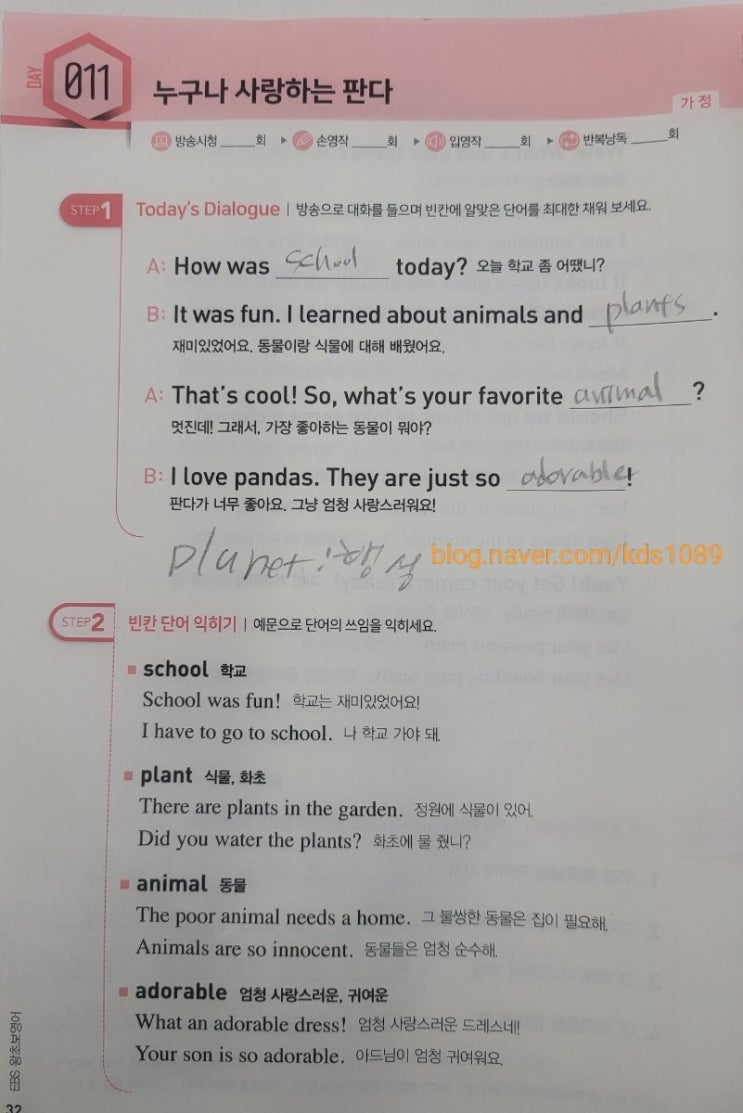 DAY 011 누구나 사랑하는 판다
가정
방송시청 _____회 ▶ 손영작 _____회 ▶ 입영작 _____회 ▶ 반복낭독 _____회
STEP1 Today's Dialogue | 방송으로 대화를 들으며 빈칸에 알맞은 단어를 최대한 채워 보세요.
A: How was school today? 오늘 학교 좀 어땠니?
B: It was fun. I learned about animals and plants.
재미있었어요. 동물이랑 식물에 대해 배웠어요.
A: That's cool! So, what's your favorite animal?
멋진데! 그래서, 가장 좋아하는 동물이 뭐야?
B: I love pandas. They are just so adorable!
판다가 너무 좋아요. 그냥 엄청 사랑스러워요!
planet : 행성
blog.naver.com/kds1089
STEP2 빈칸 단어 익히기 | 예문으로 단어의 쓰임을 익히세요.
■ school 학교
School was fun! 학교는 재미있었어요!
I have to go to school. 나 학교 가야 돼.
■ plant 식물, 화초
There are plants in the garden. 정원에 식물이 있어.
Did you water the plants? 화초에 물 줬니?
■ animal 동물
The poor animal needs a home. 그 불쌍한 동물은 집이 필요해.
Animals are so innocent. 동물들은 엄청 순수해.
■ adorable 엄청 사랑스러운, 귀여운
What an adorable dress! 엄청 사랑스러운 드레스네!
Your son is so adorable. 아드님이 엄청 귀여워요.
EBS 왕초보영어
32